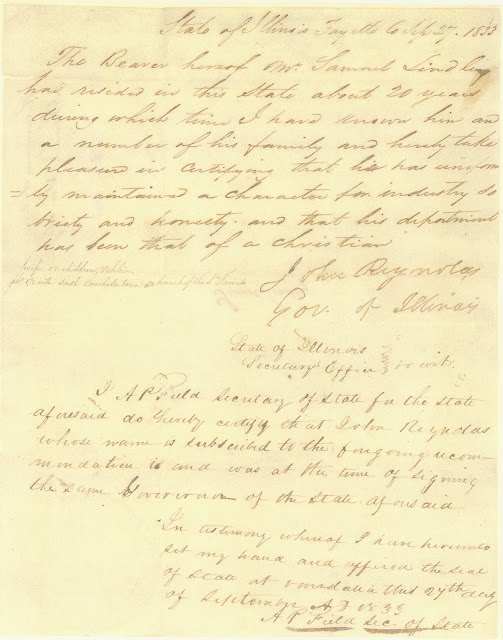 State of Illinois Fayette Co Sep 27. 1833
The Bearer hereof Mr. Samuel Lindley
has resided in this State about 20 years
during which time I have known him and
a number of his family and hereby take
pleasure in certifying that he has uniform
=ly maintained a character for industry so
briety and honesty. and that his deportment
has been that of a Christian
wife 10 children
John Reynolds
Gov. of Illinois
State of Illinois
Secretary's Office to wit.
I A P Field Secretary of State for the State
aforesaid do hereby certify that John Reynolds
whose name is subscribed to the forgoing recom
mendation is and was at the time of signing
the same Goverernor of the State aforesaid
In testimony whereof I have hereunto
set my hand and affixed the seal
of State at Vandalia this 27th day
of September A D 1833
A P Field Sec. of State